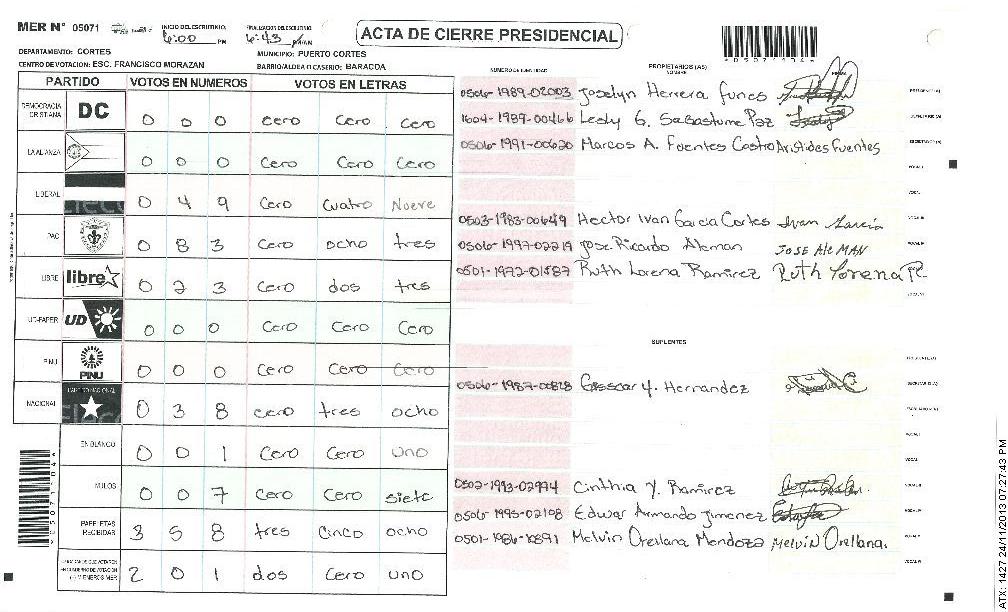 MER N° 05071
INICIO DEL ESCRUTINIO. 6:00 PM
FINALIZACION DEL ESCRUTINIO. 6:43
ACTA DE CIERRE PRESIDENCIAL
*0507104*
DEPARTAMENTO: CORTES
MUNICIPIO: PUERTO CORTES
CENTRO DE VOTACION: ESC. FRANCISCO MORAZAN
BARRIO/ALDEA O CASERIO: BARACOA
PARTIDO VOTOS EN NUMEROS VOTOS EN LETRAS
DEMOCRACIA CRISTIANA DC 0 0 0 cero Cero Cero
LA ALIANZA 0 0 0 Cero Cero Cero
LIBERAL 0 4 9 Cero Cuatro Nueve
PAC 0 8 3 Cero ocho tres
LIBRE libre 0 2 3 Cero dos tres
UD-FAPER UD 0 0 0 Cero Cero Cero
PINU PINU 0 0 0 Cero Cero Cero
NACIONAL PARTIDO NACIONAL 0 3 8 cero tres ocho
EN BLANCO 0 0 1 Cero Cero uno
NULOS 0 0 7 Cero Cero siete
PAPELETAS RECIBIDAS 3 5 8 tres Cinco ocho
CIUDADANOS QUE VOTARON EN CUADERNO DE VOTACION (+) MIEMBROS MER 2 0 1 dos Cero uno
*0507104*
NUMERO DE IDENTIDAD PROPIETARIOS (AS) NOMBRE FIRMA
0506-1989-02003 Joselyn Herrera funes PRESIDENTE(A)
1604-1989-00466 Lesly G. Sabastume Paz SECRETARIO (A)
0506-1991-00620 Marcos A. Fuentes Castro Aristides Fuentes ESCRUTADOR (A)
VOCAL I
VOCAL
0503-1983-00649 Hector Ivan Garcia Cortes Ivan Garcia VOCAL III
0506-1997-02219 Jose Ricardo Aleman JOSE AleMAN VOCAL IV
0501-1972-01587 Ruth Lorena Ramirez Ruth Lorena R. VOCAL V
SUPLENTES
PRESIDENTE(A)
0506-1987-00828 Hernandez SECRETARIO(A)
ESCRUTADOR(A)
VOCAL I
VOCAL
0502-1993-02974 Cinthia Y. Ramirez VOCAL III
0506-1995-02108 Edwar Armando Jimenez VOCAL IV
0501-1986-10891 Melvin Orellana Mendoza Melvin Orellana. VOCAL V
VOCAL VI
ATX: 1427 24/11/2013 07:27:43 PM